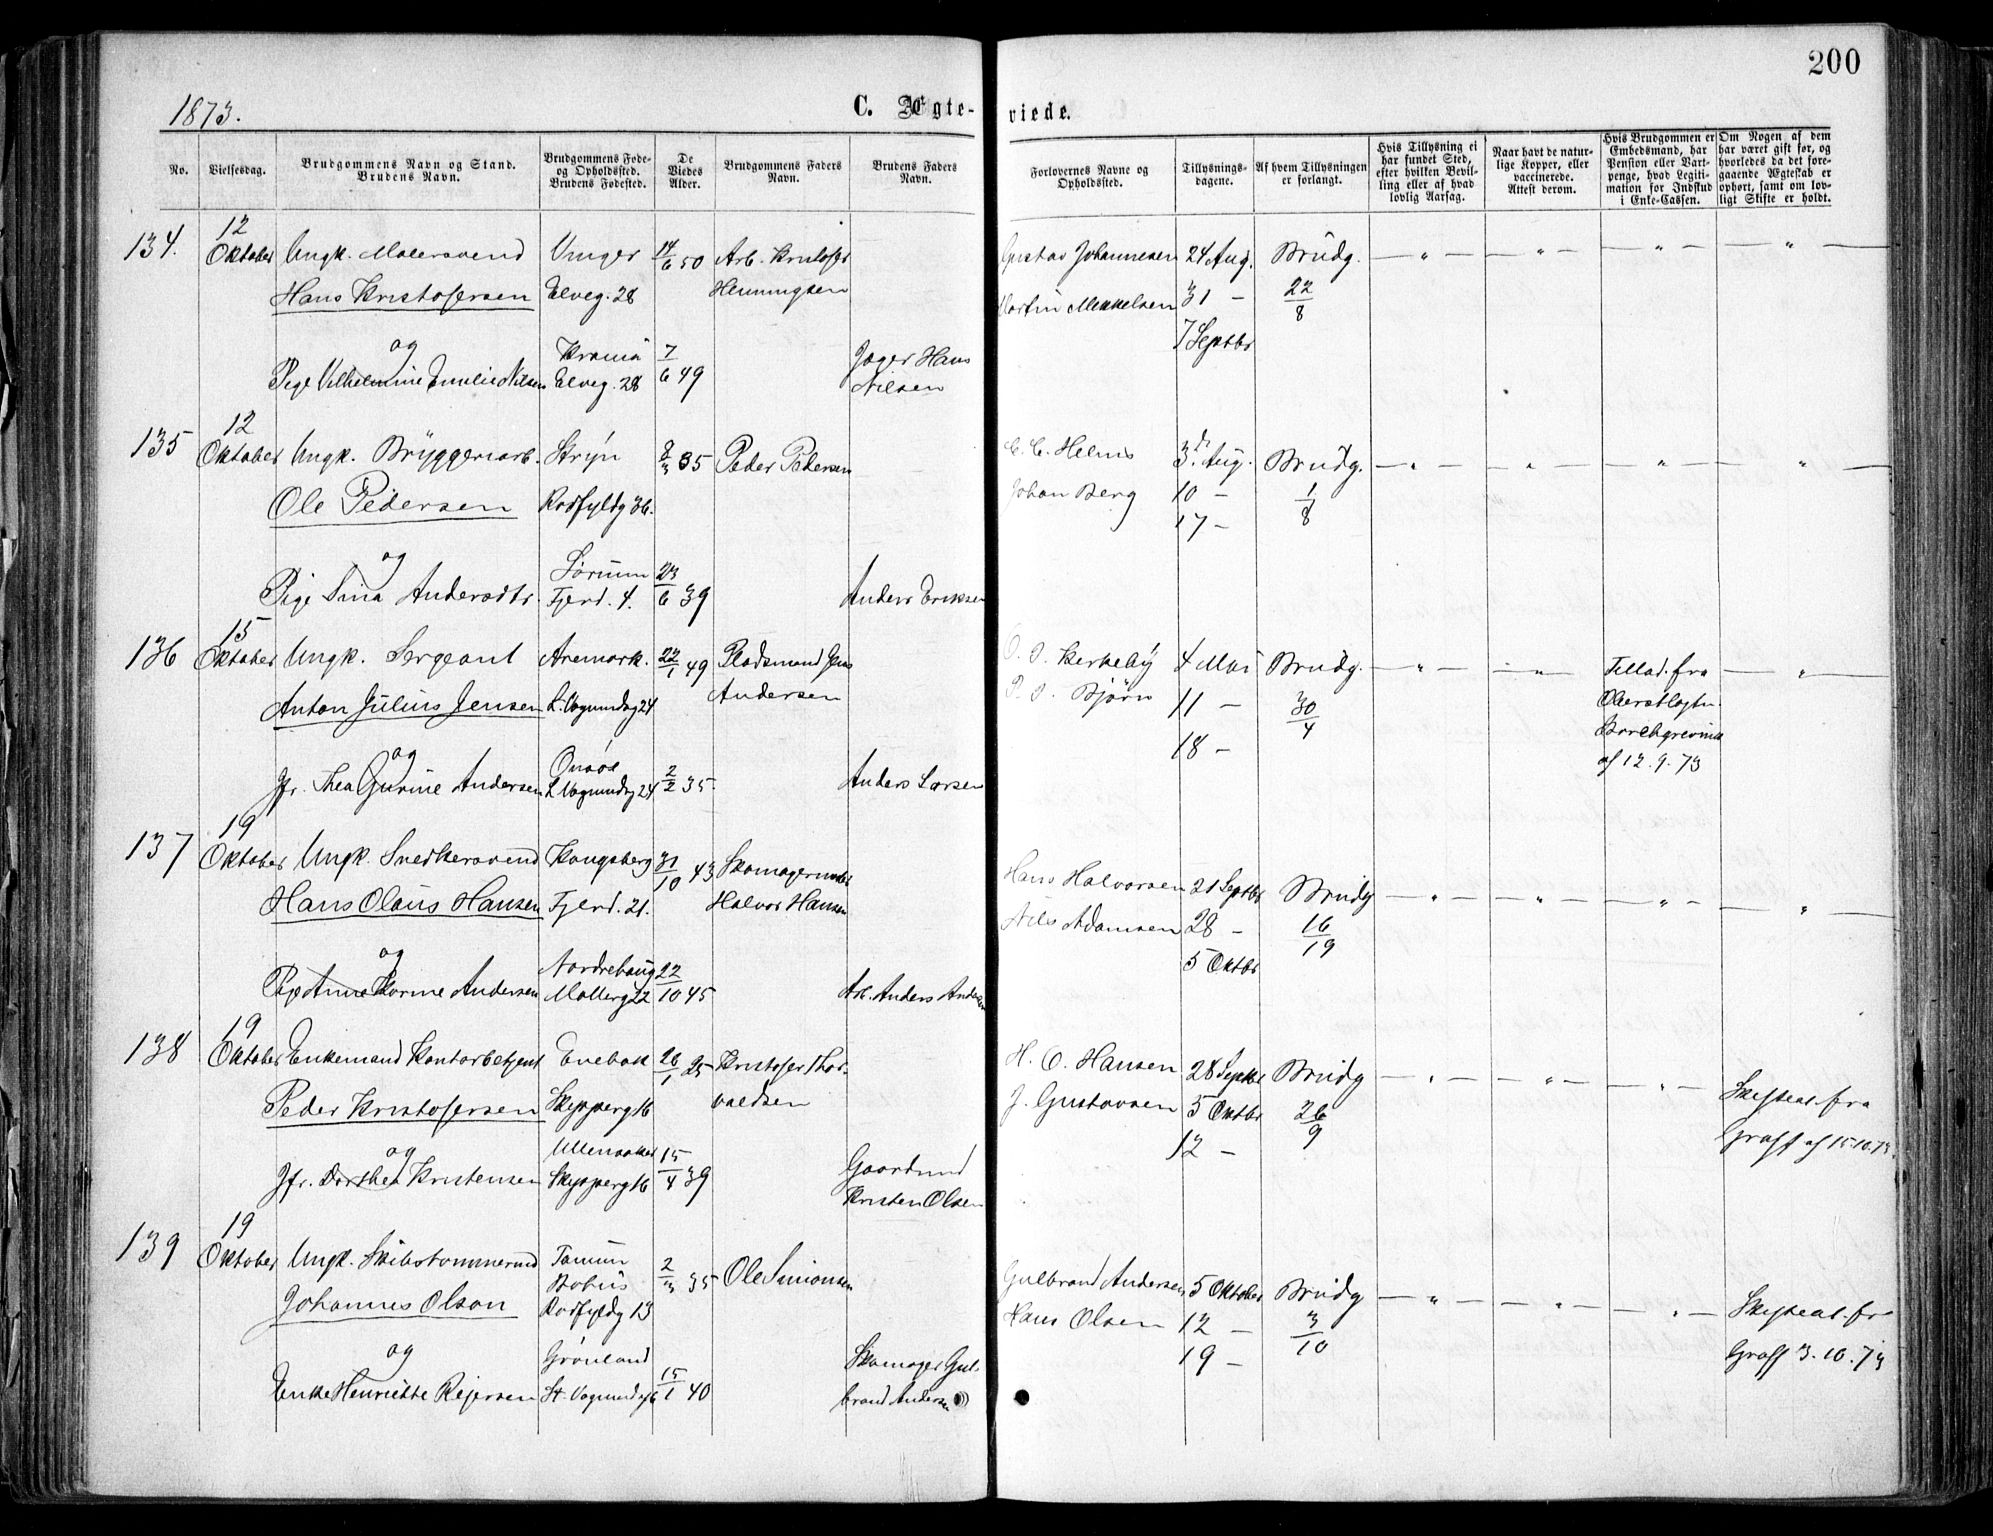 200
1873.
C. Ægte-
viede.
No.
Vielsesdag.
Brudgommens Navn og Stand.
Brudens Navn.
Brudgommens Føde-
og Opholdssted.
Brudens Fødested.
De
Viedes
Alder.
Brudgommens Faders
Navn.
Brudens Faders
Navn.
Forlovernes Navne og
Opholdssted.
Tillysnings-
dagene.
Af hvem Tillysningen
er forlangt.
Hvis Tillysning ei
har fundet Sted,
efter hvilken Bevil-
ling eller af hvad
lovlig Aarsag.
Naar havt de natur-
lige Kopper, eller
vaccinerede.
Attest derom.
Hvis Brudgommen er
Embedsmand, har
Pension eller Vart-
penge, hvad Legiti-
mation for Indskud
i Enke-Cassen.
Om Nogen af dem
har været gift før, og
hvorledes da det fore-
gaaende Ægteskab er
ophørt, samt om lov-
ligt Skifte er holdt.
12
134. Oktober Ungk. Malersvend Vinger 14/6 50 Arb. Kristofer
Hans Kristofersen Elveg. 28 Henningsen
og Krania
Pige Vilhelmine Emilie Nilsen Elveg. 28 7/6 49 Jæger Hans
Nilsen
Gustav Johannesen 24 Aug. Brudg. — " — — " — — " — — " —
Martin Mikkelsen 31 — 22/8
7 Septbr
12
135 Oktober Ungk. Bryggeriarb. Stryn 2/3 35 Peder Pedersen
Ole Pedersen Rodfyldg 36.
og Sørum
Pige Sina Andersdtr. Fjerd. 4. 23/6 39 Anders Eriksen
C. C. Helms 3. Aug. Brudg. — " — " — " — " —
Johan Berg 10 — 1/8
17 —
15
136 Oktober Ungk. Sergeant Aremark. 22/1 49 Pladsmand Jens
Anton Julius Jensen L. Vognmdsg 24 Andersen
og Onsøe
Jfr. Thea Gurine Andersen L Vognmdsg 24 2/2 35 Anders Larsen
O. S. Kerkeby 4 Mai Brudg. — " — — " — Tillad. fra — " —
P. S. Bjørn 11 — 30/4 Oberstløgtn.
18 — Borchgrevink
af 12. 9. 73
19
137 Oktober Ungk. Snedkersvend Kongsberg 31/10 43 Skomagermester
Hans Olaus Hansen Fjerd. 21. Halvor Hansen
og Nordrehoug
Pige Anne Karine Andersen Møllerg 22 22/10 45 Arb. Anders Andersen
Hans Halvorsen 21 Septbr Brudg — " — " — " — " —
Nils Adamsen 28 — 16/19
5 Oktbr
19
138 Oktober Enkemand Kontorbetjent Enebak 26/1 25 Kristofer Thor-
Peder Kristofersen Skipperg 16 valdsen
og Ullensaker
Jfr. Dorthea Kristensen Skipperg 16 15/4 39 Gaardmd
Kristen Olsen
H. O. Hansen 28 Septbr Brudg — " — " — " — Skifteat. fra
J. Gustavsen 5 Oktbr 26/9 Graff af 15.10.73
12 —
19
139 Oktober Ungk. Skibstømmermd Tanum
Johannes Olson Bohus 2/3 35 Ole Simonsen
Rodfyldg 13
og Grønland
Enke Henriette Rejersen St. Vognmdsg 6 15/1 40 Skomager Gul-
brand Andersen
Gulbrand Andersen 5 Oktober Brudg — " — " — " — Skifteat. fra
Hans Olsen 12 — 3/10 Graff 3. 10. 73
19 —